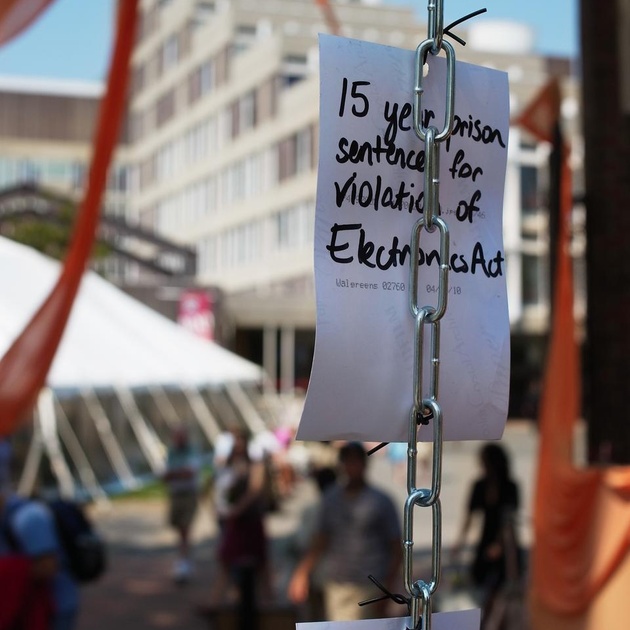 15 year prison
sentence for
violation of
Electronics Act
Walgreens 02760 04/ /10